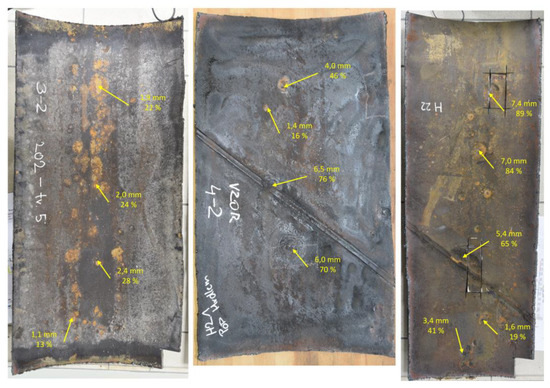 22 %
2,0 mm
24 %
2,4 mm
28 %
1,1 mm
13 %
4,0 mm
46 %
1,4 mm
16 %
6,5 mm
76 %
VZOR
4-2
6,0 mm
70 %
H 22
7,4 mm
89 %
7,0 mm
84 %
5,4 mm
65 %
3,4 mm
41 %
1,6 mm
19 %